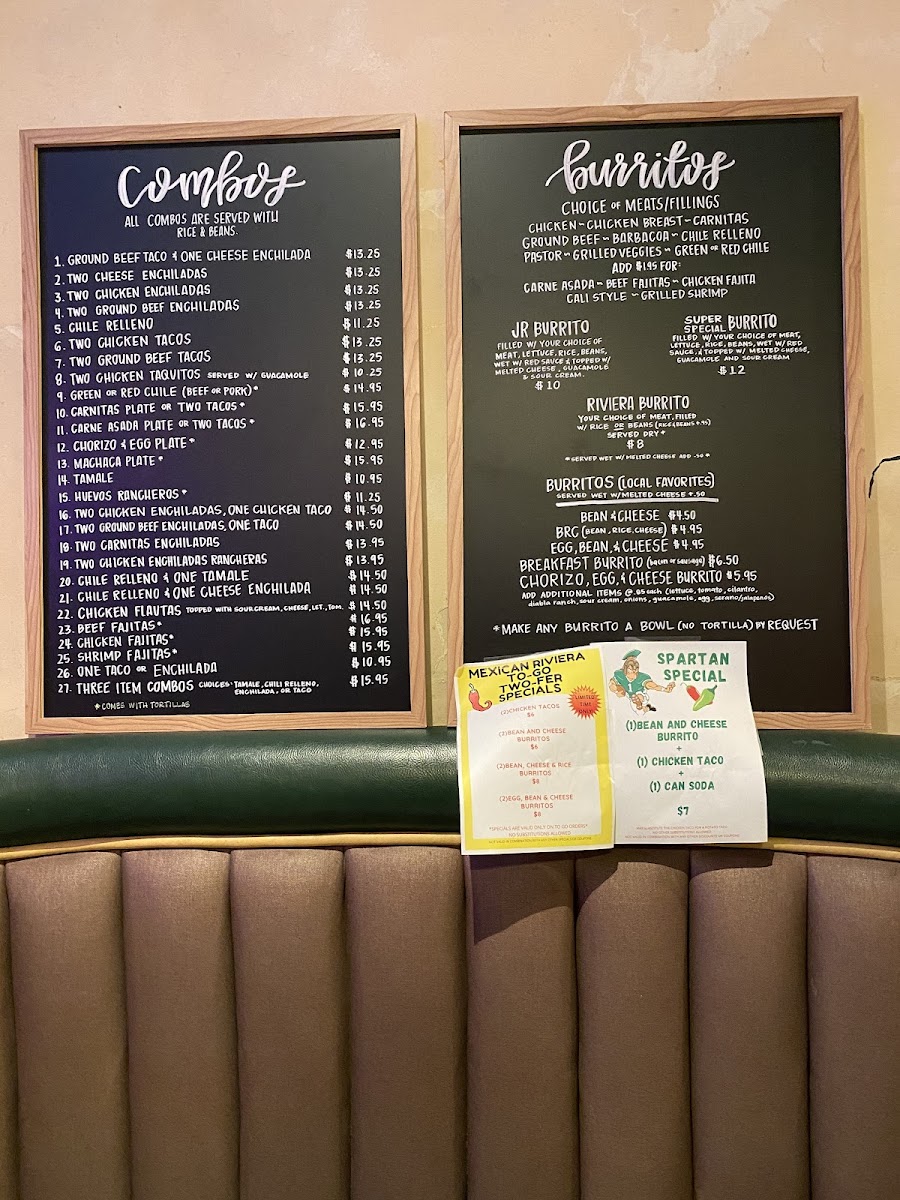 Combos
ALL COMBOS ARE SERVED WITH
RICE & BEANS.
1. GROUND BEEF TACO & ONE CHEESE ENCHILADA $13.25
2. TWO CHEESE ENCHILADAS $13.25
3. TWO CHICKEN ENCHILADAS $13.25
4. TWO GROUND BEEF ENCHILADAS $13.25
5. CHILE RELLENO $11.25
6. TWO CHICKEN TACOS $13.25
7. TWO GROUND BEEF TACOS $13.25
8. TWO CHICKEN TAQUITOS SERVED W/ GUACAMOLE $10.25
9. GREEN OR RED CHILE (BEEF OR PORK)* $14.95
10. CARNITAS PLATE OR TWO TACOS* $15.95
11. CARNE ASADA PLATE OR TWO TACOS* $16.95
12. CHORIZO & EGG PLATE* $12.95
13. MACHACA PLATE* $15.95
14. TAMALE $10.95
15. HUEVOS RANCHEROS* $11.25
16. TWO CHICKEN ENCHILADAS, ONE CHICKEN TACO $14.50
17. TWO GROUND BEEF ENCHILADAS, ONE TACO $14.50
18. TWO CARNITAS ENCHILADAS $13.95
19. TWO CHICKEN ENCHILADAS RANCHERAS $13.95
20. CHILE RELLENO & ONE TAMALE $14.50
21. CHILE RELLENO & ONE CHEESE ENCHILADA $14.50
22. CHICKEN FLAUTAS TOPPED WITH SOUR CREAM, CHEESE, LET., TOM. $14.50
23. BEEF FAJITAS* $16.95
24. CHICKEN FAJITAS* $15.95
25. SHRIMP FAJITAS* $15.95
26. ONE TACO OR ENCHILADA $10.95
27. THREE ITEM COMBOS CHOICES: TAMALE, CHILI RELLENO, $15.95
ENCHILADA, OR TACO
*COMES WITH TORTILLAS
burritos
CHOICE OF MEATS/FILLINGS
CHICKEN ~ CHICKEN BREAST ~ CARNITAS
GROUND BEEF ~ BARBACOA ~ CHILE RELLENO
PASTOR ~ GRILLED VEGGIES ~ GREEN OR RED CHILE
ADD $1.95 FOR:
CARNE ASADA ~ BEEF FAJITAS ~ CHICKEN FAJITA
CALI STYLE ~ GRILLED SHRIMP
JR BURRITO
FILLED W/ YOUR CHOICE OF
MEAT, LETTUCE, RICE, BEANS,
WET W/ RED SAUCE & TOPPED W/
MELTED CHEESE, GUACAMOLE
& SOUR CREAM.
$10
SUPER SPECIAL BURRITO
FILLED W/ YOUR CHOICE OF MEAT,
LETTUCE, RICE, BEANS, WET W/ RED
SAUCE, & TOPPED W/ MELTED CHEESE,
GUACAMOLE AND SOUR CREAM
$12
RIVIERA BURRITO
YOUR CHOICE OF MEAT, FILLED
W/ RICE OR BEANS (RICE & BEANS +.95)
SERVED DRY*
$8
*SERVED WET W/ MELTED CHEESE ADD .50*
BURRITOS (LOCAL FAVORITES)
SERVED WET W/ MELTED CHEESE +.50
BEAN & CHEESE $4.50
BRC (BEAN, RICE, CHEESE) $4.95
EGG, BEAN, & CHEESE $4.95
BREAKFAST BURRITO (bacon or sausage) $6.50
CHORIZO, EGG, & CHEESE BURRITO $5.95
ADD ADDITIONAL ITEMS @ .85 each (lettuce, tomato, cilantro,
diabla ranch, sour cream, onions, guacamole, egg, serano/jalapeños)
*MAKE ANY BURRITO A BOWL (NO TORTILLA) BY REQUEST
MEXICAN RIVIERA
TO-GO
TWO-FER
SPECIALS
LIMITED
TIME
ONLY!
(2)CHICKEN TACOS
$6
(2)BEAN AND CHEESE
BURRITOS
$6
(2)BEAN, CHEESE & RICE
BURRITOS
$8
(2)EGG, BEAN & CHEESE
BURRITOS
$8
*SPECIALS ARE VALID ONLY ON TO GO ORDERS*
NO SUBSTITUTIONS ALLOWED
SPARTAN
SPECIAL
(1)BEAN AND CHEESE
BURRITO
+
(1) CHICKEN TACO
+
(1) CAN SODA
$7